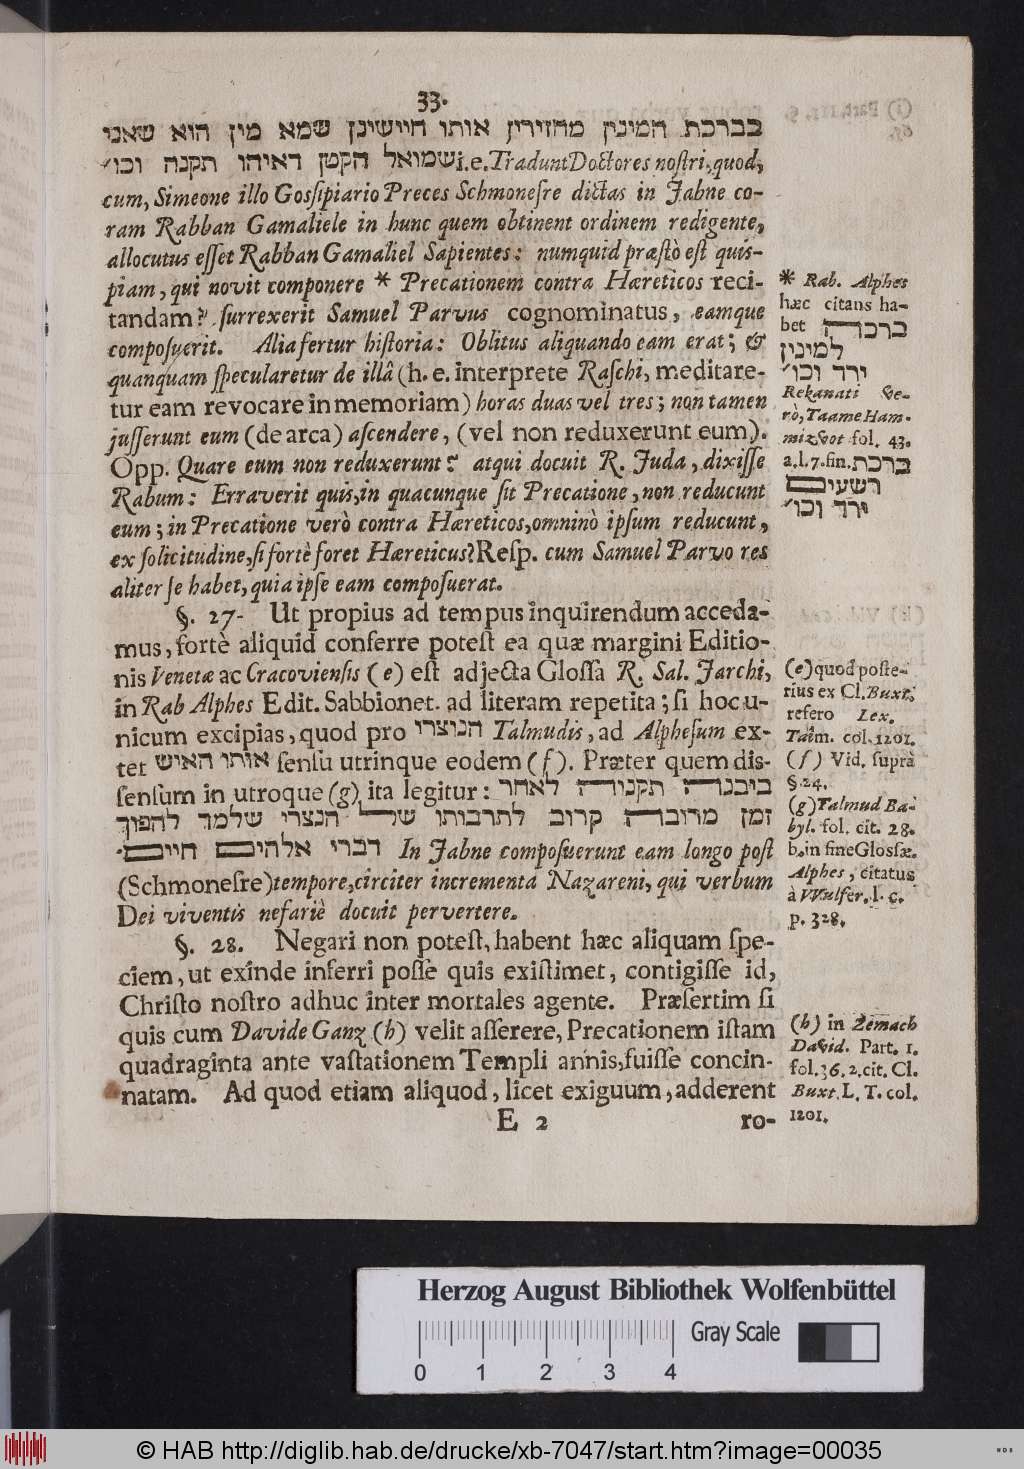 33.
בברכת המינין מחזירין אותו חיישינן שמא מין הוא שאני
שמואל הקטן דאיהו תקנה וכו׳ i.e. Tradunt Doctores nostri, quod,
cum, Simeone illo Gossipiario Preces Schmonesre dictas in Jabne co-
ram Rabban Gamaliele in hunc quem obtinent ordinem redigente,
allocutus esset Rabban Gamaliel Sapientes: numquid præstò est quis-
piam, qui novit componere * Precationem contra Hæreticos reci-
tandam? surrexerit Samuel Parvus cognominatus, eamque
composuerit. Alia fertur historia: Oblitus aliquando eam erat; &
quanquam specularetur de illâ (h. e. interprete Raschi, meditare-
tur eam revocare in memoriam) horas duas vel tres; non tamen
jusserunt eum (de arca) ascendere, (vel non reduxerunt eum).
Opp. Quare eum non reduxerunt? atqui docuit R. Juda, dixisse
Rabum: Erraverit quis, in quacunque sit Precatione, non reducunt
eum; in Precatione verò contra Hæreticos, omninò ipsum reducunt,
ex solicitudine, si fortè foret Hæreticus? Resp. cum Samuel Parvo res
aliter se habet, quia ipse eam composuerat.
§. 27. Ut propius ad tempus inquirendum acceda-
mus, fortè aliquid conferre potest ea quæ margini Editio-
nis Venetæ ac Cracoviensis (e) est adjecta Glossa R. Sal. Jarchi,
in Rab Alphes Edit. Sabbionet. ad literam repetita; si hoc u-
nicum excipias, quod pro הנוצרי Talmudis, ad Alphesum ex-
tet אותו האיש sensu utrinque eodem (f). Præter quem dis-
sensum in utroque (g) ita legitur: ביבנה תקנוה לאחר
זמן מרובה קרוב לתרבותו של הנצרי שלמד להפוך
דברי אלהים חיים. In Jabne composuerunt eam longo post
(Schmonesre) tempore, circiter incrementa Nazareni, qui verbum
Dei viventis nefariè docuit pervertere.
§. 28. Negari non potest, habent hæc aliquam spe-
ciem, ut exinde inferri posse quis existimet, contigisse id,
Christo nostro adhuc inter mortales agente. Præsertim si
quis cum Davide Ganz (h) velit asserere, Precationem istam
quadraginta ante vastationem Templi annis, fuisse concin-
natam. Ad quod etiam aliquod, licet exiguum, adderent
E 2 ro-
* Rab. Alphes
hæc citans ha-
bet ברכה
למינין
ירד וכו׳
Rekanati ve-
rò, Taame Ham-
mizvot fol. 43.
a. l. 7. fin. ברכת
רשעים
ירד וכו׳
(e) quod poste-
rius ex Cl. Buxt.
refero Lex.
Talm. col. 1201.
(f) Vid. suprà
§. 24.
(g) Talmud Ba-
byl. fol. cit. 28.
b. in fine Glossæ.
Alphes, citatus
à Wulfer. l. c.
p. 328.
(h) in Zemach
David. Part. 1.
fol. 36. 2. cit. Cl.
Buxt. L. T. col.
1201.
Herzog August Bibliothek Wolfenbüttel
Gray Scale
0 1 2 3 4
© HAB http://diglib.hab.de/drucke/xb-7047/start.htm?image=00035